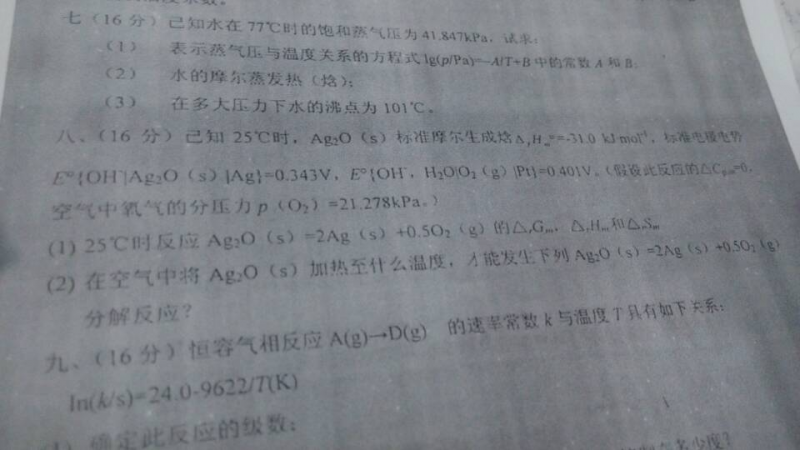 七(16分)已知水在77℃时的饱和蒸气压为41.847kPa。试求:
(1) 表示蒸气压与温度关系的方程式lg(p/Pa)=-A/T+B中的常数A和B;
(2) 水的摩尔蒸发热(焓);
(3) 在多大压力下水的沸点为101℃。
八、(16分)已知25℃时,Ag₂O(s)标准摩尔生成焓Δ,Hₘº=-31.0 kJ·mol⁻¹,标准电极电势
Eº{OH⁻|Ag₂O(s)|Ag}=0.343V,Eº{OH⁻,H₂O|O₂(g)|Pt}=0.401V。(假设此反应的△Cₚ,ₘ=0,
空气中氧气的分压力p(O₂)=21.278kPa。)
(1) 25℃时反应Ag₂O(s)=2Ag(s)+0.5O₂(g)的△ᵣGₘ,△ᵣHₘ和△ᵣSₘ
(2) 在空气中将Ag₂O(s)加热至什么温度,才能发生下列Ag₂O(s)=2Ag(s)+0.5O₂(g)
分解反应?
九、(16分)恒容气相反应A(g)→D(g) 的速率常数k与温度T具有如下关系:
ln(k/s)=24.0-9622/T(K)
确定此反应的级数;